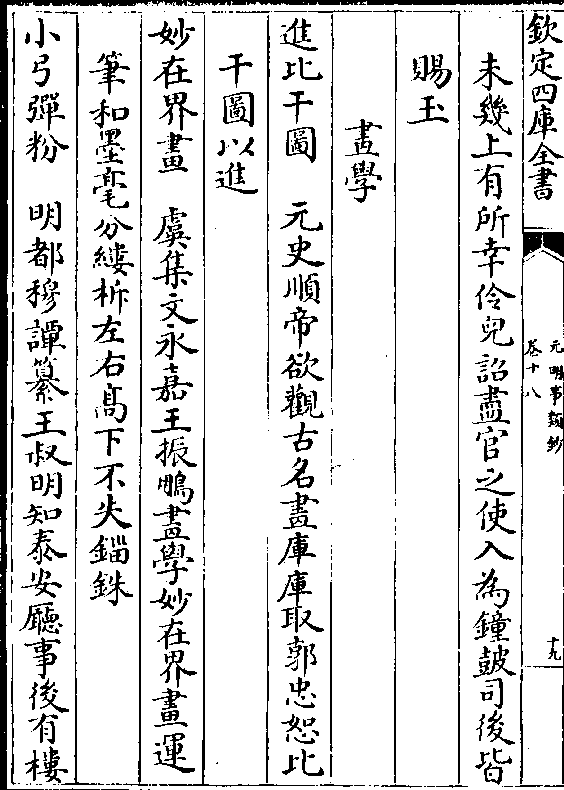 欽定四庫全書
元明事類鈔
卷十八
十九
未幾上有所幸伶兒詔盡官之使入為鐘皷司後皆
賜玉
畫學
進比干圖　元史順帝欲觀古名畫庫庫取郭忠恕比
干圖以進
妙在界畫　虞集文永嘉王振鵬畫學妙在界畫運
筆和墨毫分縷柝左右髙下不失錙銖
小弓彈粉　明都穆譚纂王叔明知泰安廳事後有樓